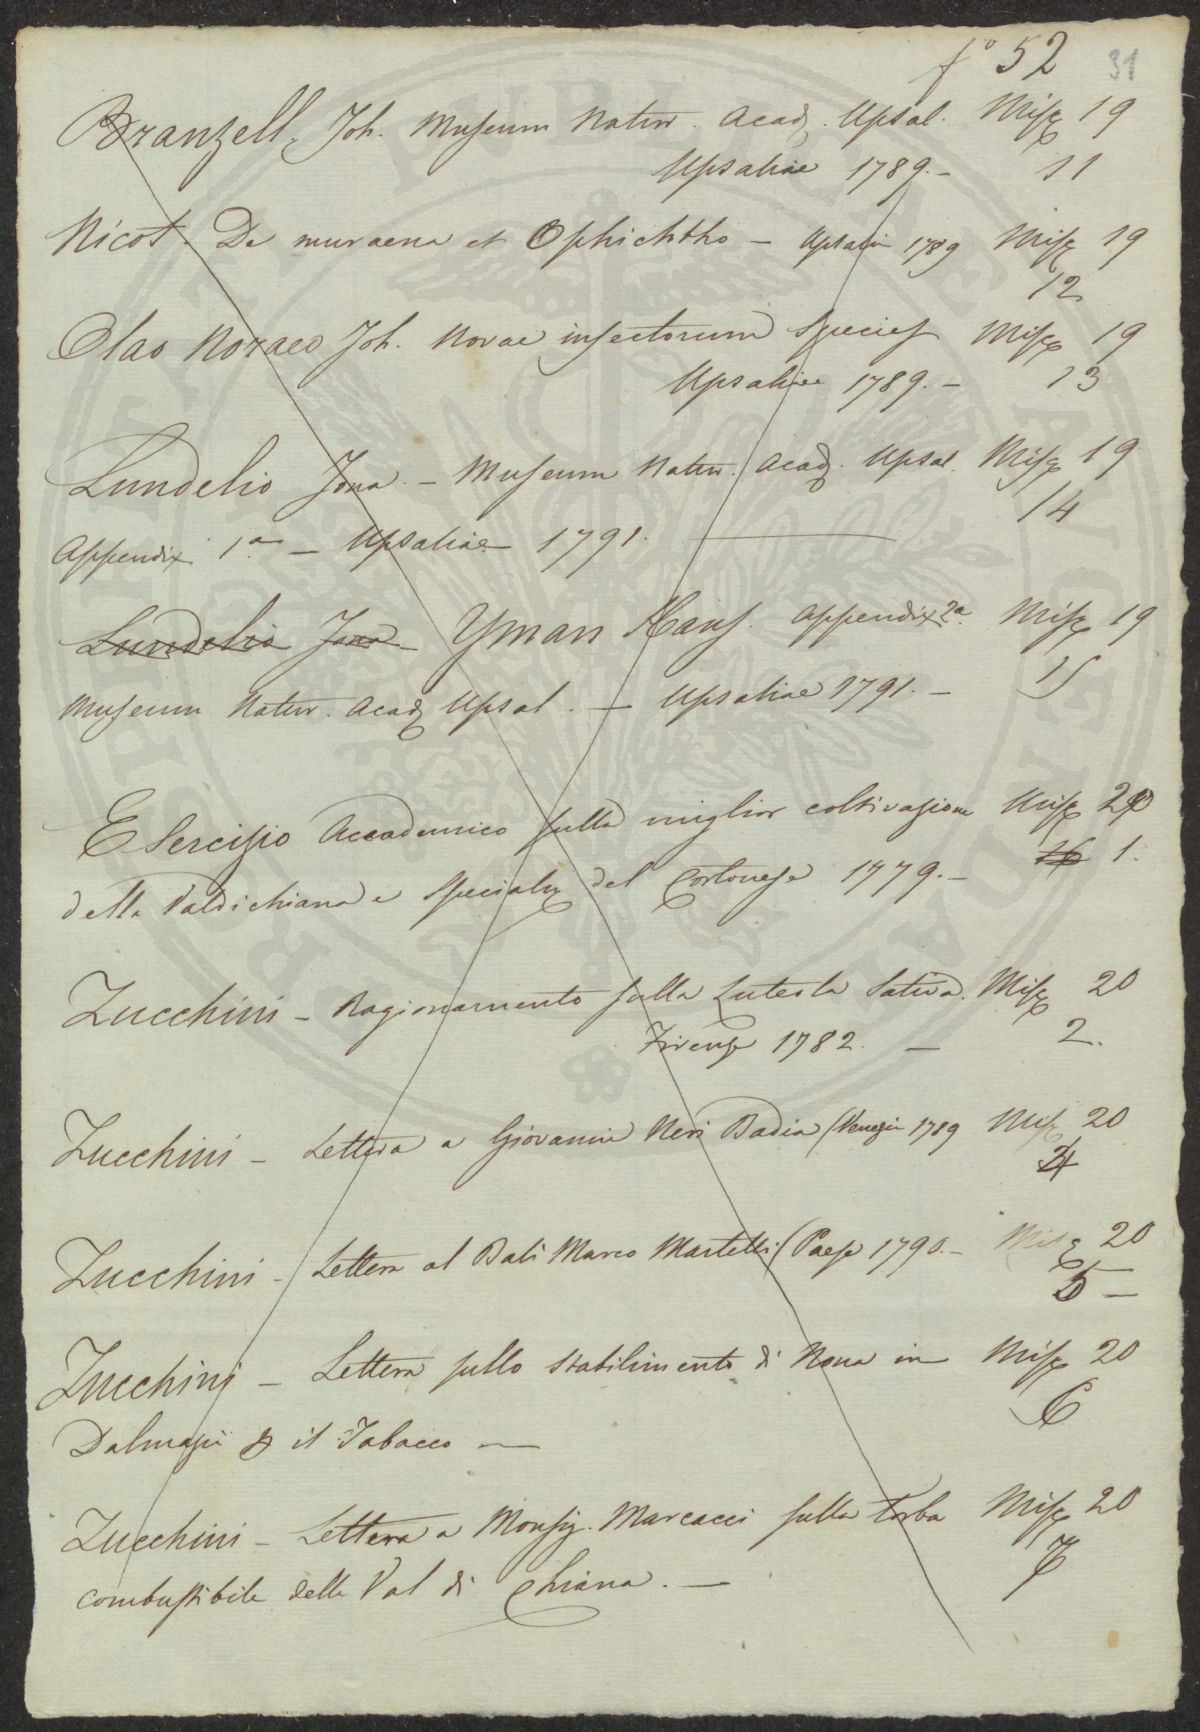 f.o 52 31
Branzell, Joh. Museum Natur. Acad. Upsal. Misc. 19
Upsaliae 1789.- 11
Nicot. De muraena et Ophichtho - Upsalie 1789 Misc. 19
12
Olao Noraeo Joh. Novae insectorum species Misc. 19
Upsaliae 1789.- 13
Lundelio Jona - Museum Natur. Acad. Upsal. Misc. 19
14
Appendix 1.a - Upsaliae 1791.
Lundelio Jona - Yman Hans. Appendix 2.a Misc. 19
15
Museum Natur. Acad. Upsal. - Upsaliae 1791.-
Esercizio Accademico sulla miglior coltivazione Misc. 20
della Valdichiana e specialm. del Cortonese 1779.- 16 1.
Zucchini - Ragionamento sulla Luteola Sativa. Misc. 20
Firenze 1782. - 2.
Zucchini - Lettera a Giovanni Neri Badia (Venezia 1789 Misc. 20
4
Zucchini - Lettera al Balì Marco Martelli (Paese 1790.- Misc. 20
5 -
Zucchini - Lettera sullo stabilimento di Nona in Misc. 20
6
Dalmazia p il Tabacco -
Zucchini - Lettera a Monsig. Marcacci sulla torba Misc. 20
7
combustibile della Val di Chiana. -